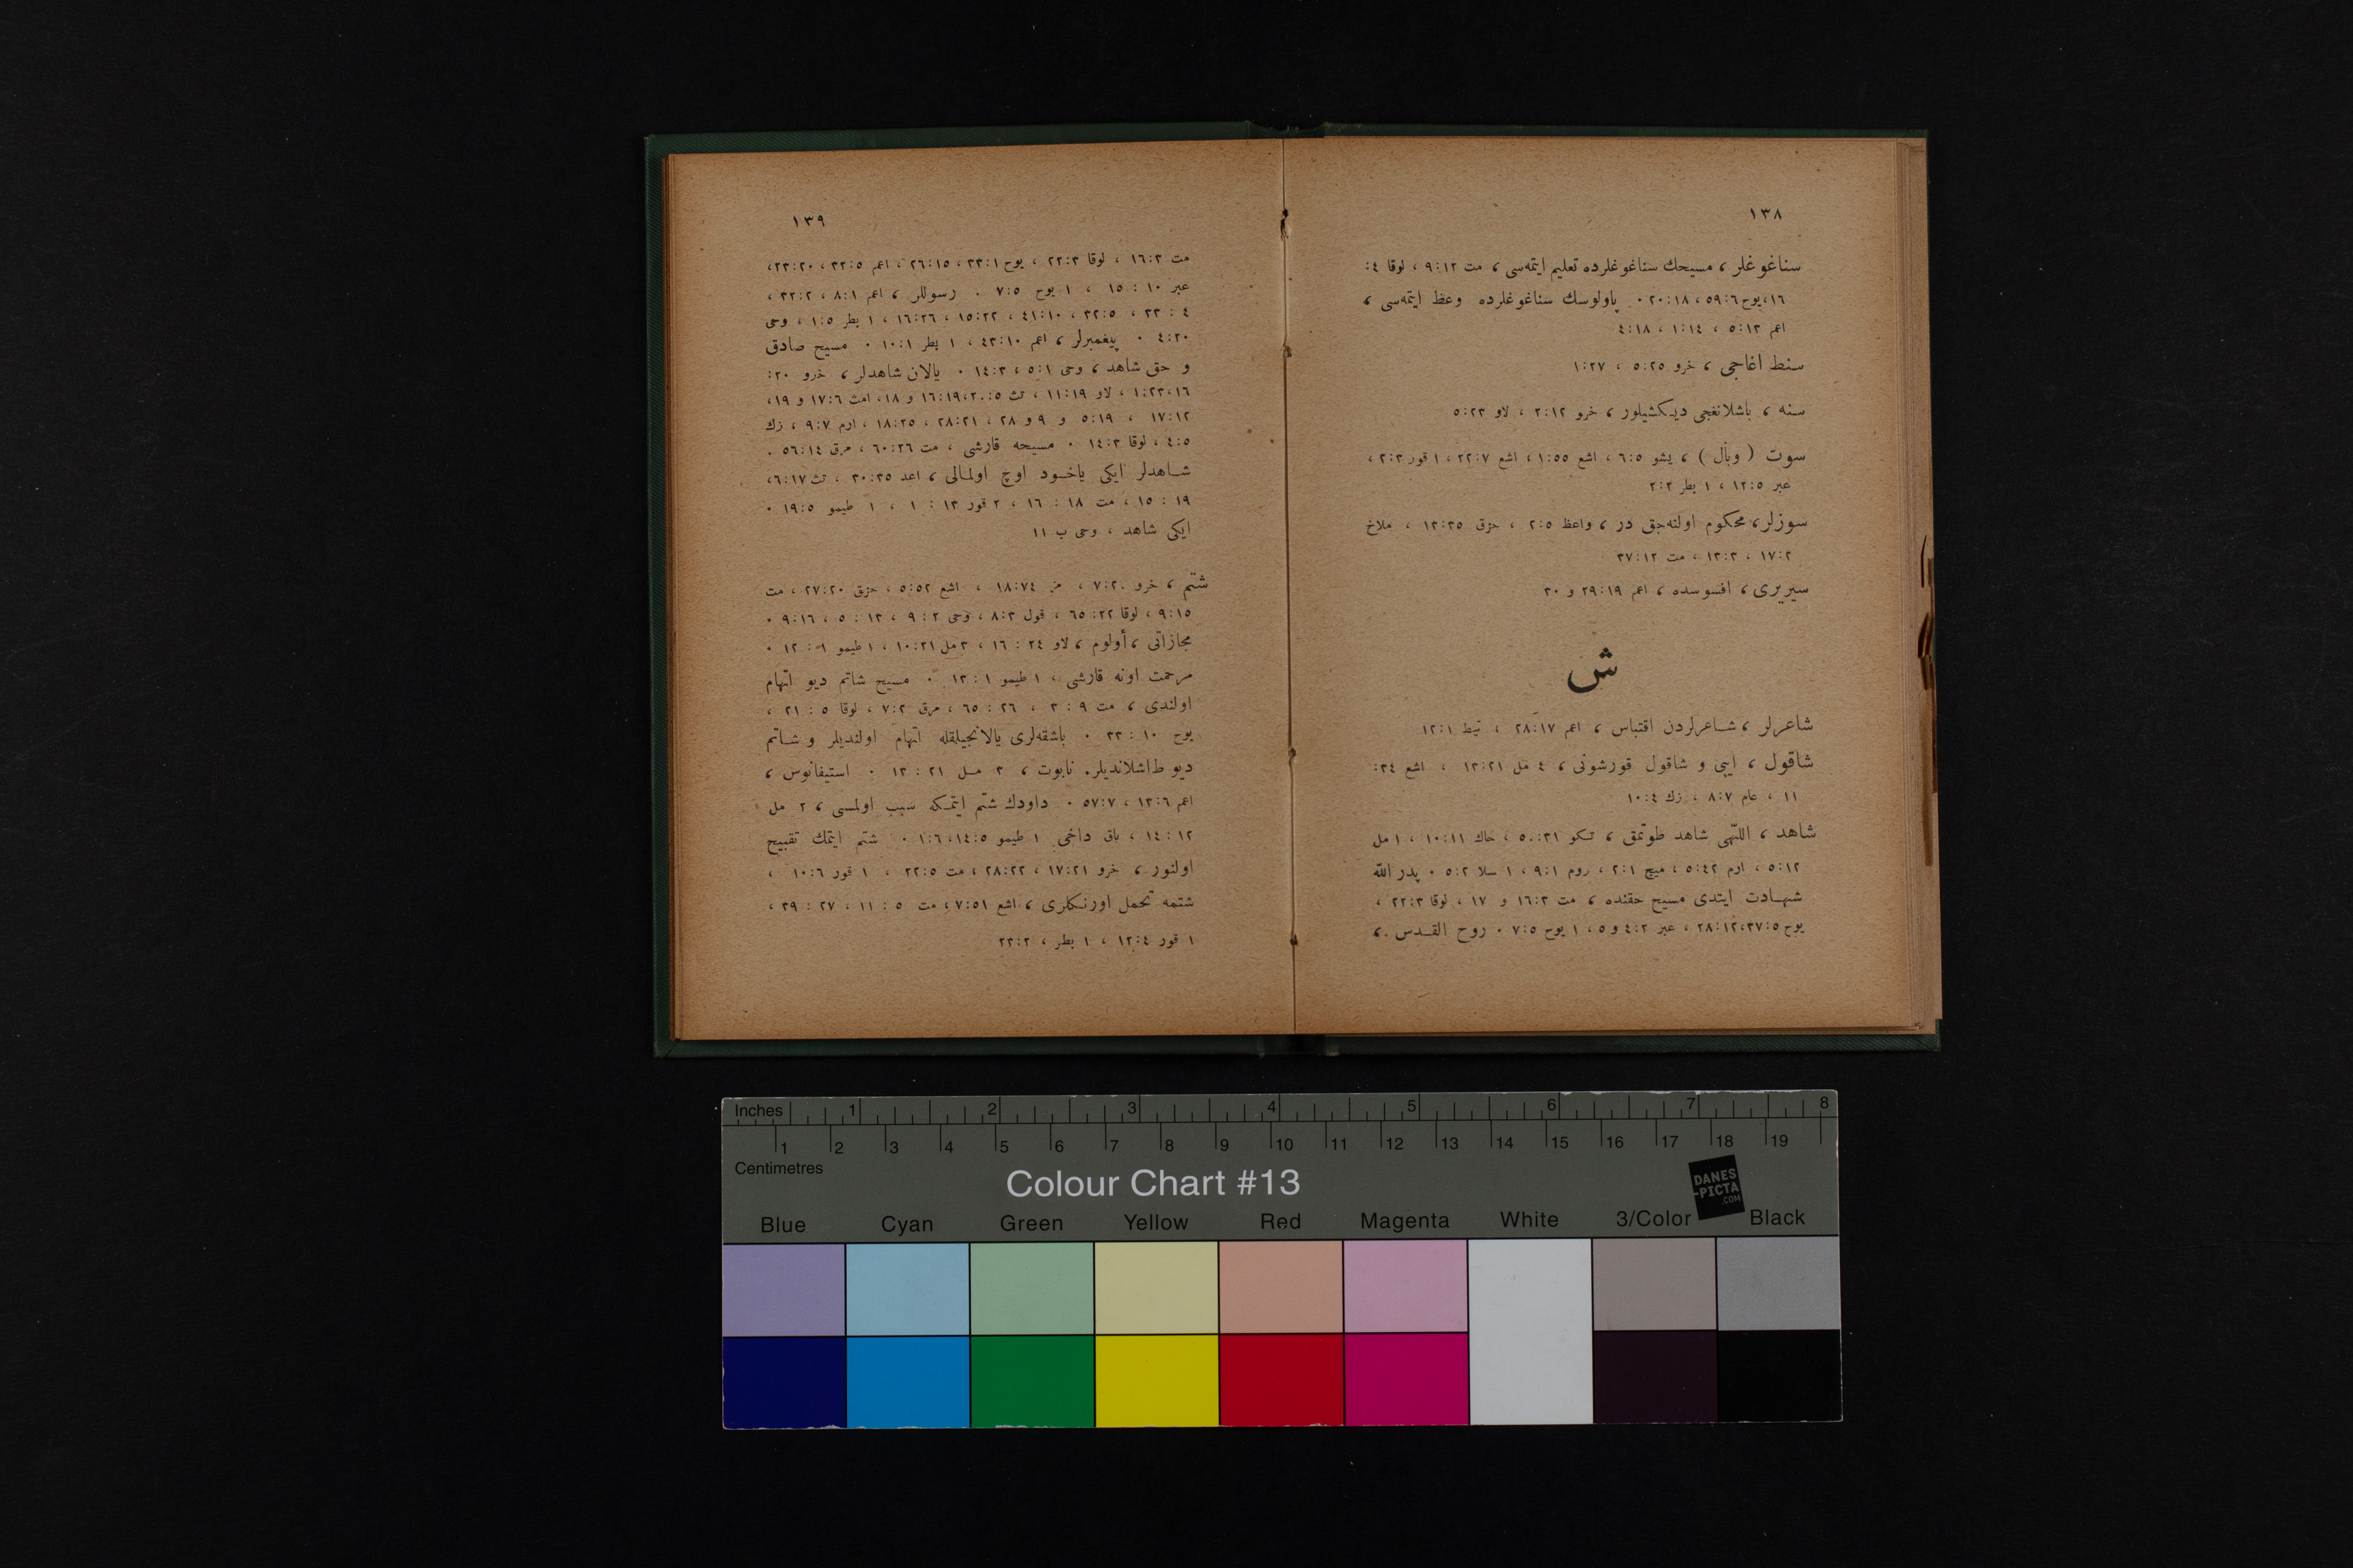 ١٣٨
سناغوغلر ، مسيحك سناغوغلرده تعليم ايتمه‌سى ، مت ٩:١٢ ، لوقا ٤:
١٦، يوح ٥٩:٦ ، ٢٠:١٨ ٠ پاولوسك سناغوغلرده وعظ ايتمه‌سى ،
اعم ٥:١٣ ، ١:١٤ ، ٤:١٨
سنط اغاجى ، خرو ٥:٢٥ ، ١:٢٧
سنه ، باشلانغجى ديكشيلور ، خرو ٢:١٢ ، لاو ٥:٢٣
سوت ( وبال ) ، يشو ٦:٥ ، اشع ١:٥٥ ، اشع ٢٢:٧ ، ١ قور ٢:٣ ،
عبر ١٢:٥ ، ١ بطر ٢:٢
سوزلر، محكوم اولنه‌جق در ، واعظ ٢:٥ ، حزق ١٣:٣٥ ، ملاخ
١٧:٢ ، ١٣:٣ ، مت ٣٧:١٢
سيريرى ، افسوسده ، اعم ٢٩:١٩ و ٣٠
ش
شاعرلر ، شاعرلردن اقتباس ، اعم ٢٨:١٧ ، تيط ١٢:١
شاقول ، ايپى و شاقول قورشونى ، ٤ مل ١٣:٢١ ، اشع ٣٤:
١١ ، عام ٨:٧ ، زك ١٠:٤
شاهد ، اللّهى شاهد طوتمق ، تكو ٥٠:٣١ ، حاك ١٠:١١ ، ١ مل
٥:١٢ ، ارم ٥:٤٢ ، ميخ ٢:١ ، روم ٩:١ ، ١ سلا ٥:٢ ٠ پدر اللّه
شهادت ايتدى مسيح حقنده ، مت ١٦:٣ و ١٧ ، لوقا ٢٢:٣ ،
يوح ٣٧:٥، ٢٨:١٢ ، عبر ٤:٢ و ٥ ، ١ يوح ٧:٥ ٠ روح القدس ،
١٣٩
مت ١٦:٣ ، لوقا ٢٢:٣ ، يوح ٣٣:١ ، ٢٦:١٥ ، اعم ٣٢:٥ ، ٢٣:٢٠،
عبر ١٠ : ١٥ ، ١ يوح ٧:٥ . رسوللر ، اعم ٨:١ ، ٣٢:٢ ،
٤ : ٣٣ ، ٣٢:٥ ، ٤١:١٠ ، ١٥:٢٢ ، ١٦:٢٦ ، ١ بطر ١:٥ ، وحى
٤:٢٠ ٠ پيغمبرلر ، اعم ٤٣:١٠ ، ١ بطر ١٠:١ ٠ مسيح صادق
و حق شاهد ، وحى ٥:١ ، ١٤:٣ ٠ يالان شاهدلر ، خرو ٢٠:
١٦، ١:٢٣ ، لاو ١١:١٩ ، تث ٢٠:٥، ١٦:١٩ و ١٨، امث ١٧:٦ و ١٩،
١٧:١٢ ، ٥:١٩ و ٩ و ٢٨ ، ٢٨:٢١ ، ١٨:٢٥ ، ارم ٩:٧ ، زك
٤:٥ ، لوقا ١٤:٣ ٠ مسيحه قارشى ، مت ٦٠:٢٦ ، مرق ٥٦:١٤ .
شاهدلر ايكى ياخود اوچ اولمالى ، اعد ٣٠:٣٥ ، تث ٦:١٧،
١٩ : ١٥ ، مت ١٨ : ١٦ ، ٢ قور ١٣ : ١ ، ١ طيمو ١٩:٥ ٠
ايكى شاهد ، وحى ب ١١
شتم ، خرو ٧:٢٠ ، مز ١٨:٧٤ ، اشع ٥:٥٢ ، حزق ٢٧:٢٠ ، مت
٩:١٥ ، لوقا ٦٥:٢٢ ، قول ٨:٣ ، وحى ٩:٢ ، ١٣ : ٥ ، ٩:١٦ ٠
مجازاتى ، أولوم ، لاو ٢٤ : ١٦ ، ٣ مل ١٠:٢١ ، ١ طيمو ١ : ١٢ ٠
مرحمت اونه قارشى ، ١ طيمو ١ : ١٣ ٠ مسيح شاتم ديو اتهام
اولندى ، مت ٩ : ٣ ، ٢٦ : ٦٥ ، مرق ٧:٢ ، لوقا ٥ : ٢١ ،
يوح ١٠ : ٣٣ ٠ باشقه‌لرى يالانجيلقله اتهام اولنديلر و شاتم
ديو طاشلانديلر. نابوت ، ٣ مل ٢١ : ١٣ ٠ استيفانوس ،
اعم ١٣:٦ ، ٥٧:٧ ٠ داودك شتم ايتمكه سبب اولمسى ، ٢ مل
١٢ : ١٤ ، باق داخى ١ طيمو ١٤:٥، ١:٦ ٠ شتم ايتمك تقبيح
اولنور ، خرو ١٧:٢١ ، ٢٨:٢٢ ، مت ٢٢:٥ ، ١ قور ١٠:٦ ،
شتمه تحمل اورنكلرى ، اشع ٧:٥١ ، مت ٥ : ١١ ، ٢٧ : ٣٩ ،
١ قور ١٢:٤ ، ١ بطر ، ٢٣:٢
Inches 1 2 3 4 5 6 7 8
1 2 3 4 5 6 7 8 9 10 11 12 13 14 15 16 17 18 19
Centimetres
Colour Chart #13
DANES
-PICTA
.COM
Blue Cyan Green Yellow Red Magenta White 3/Color Black